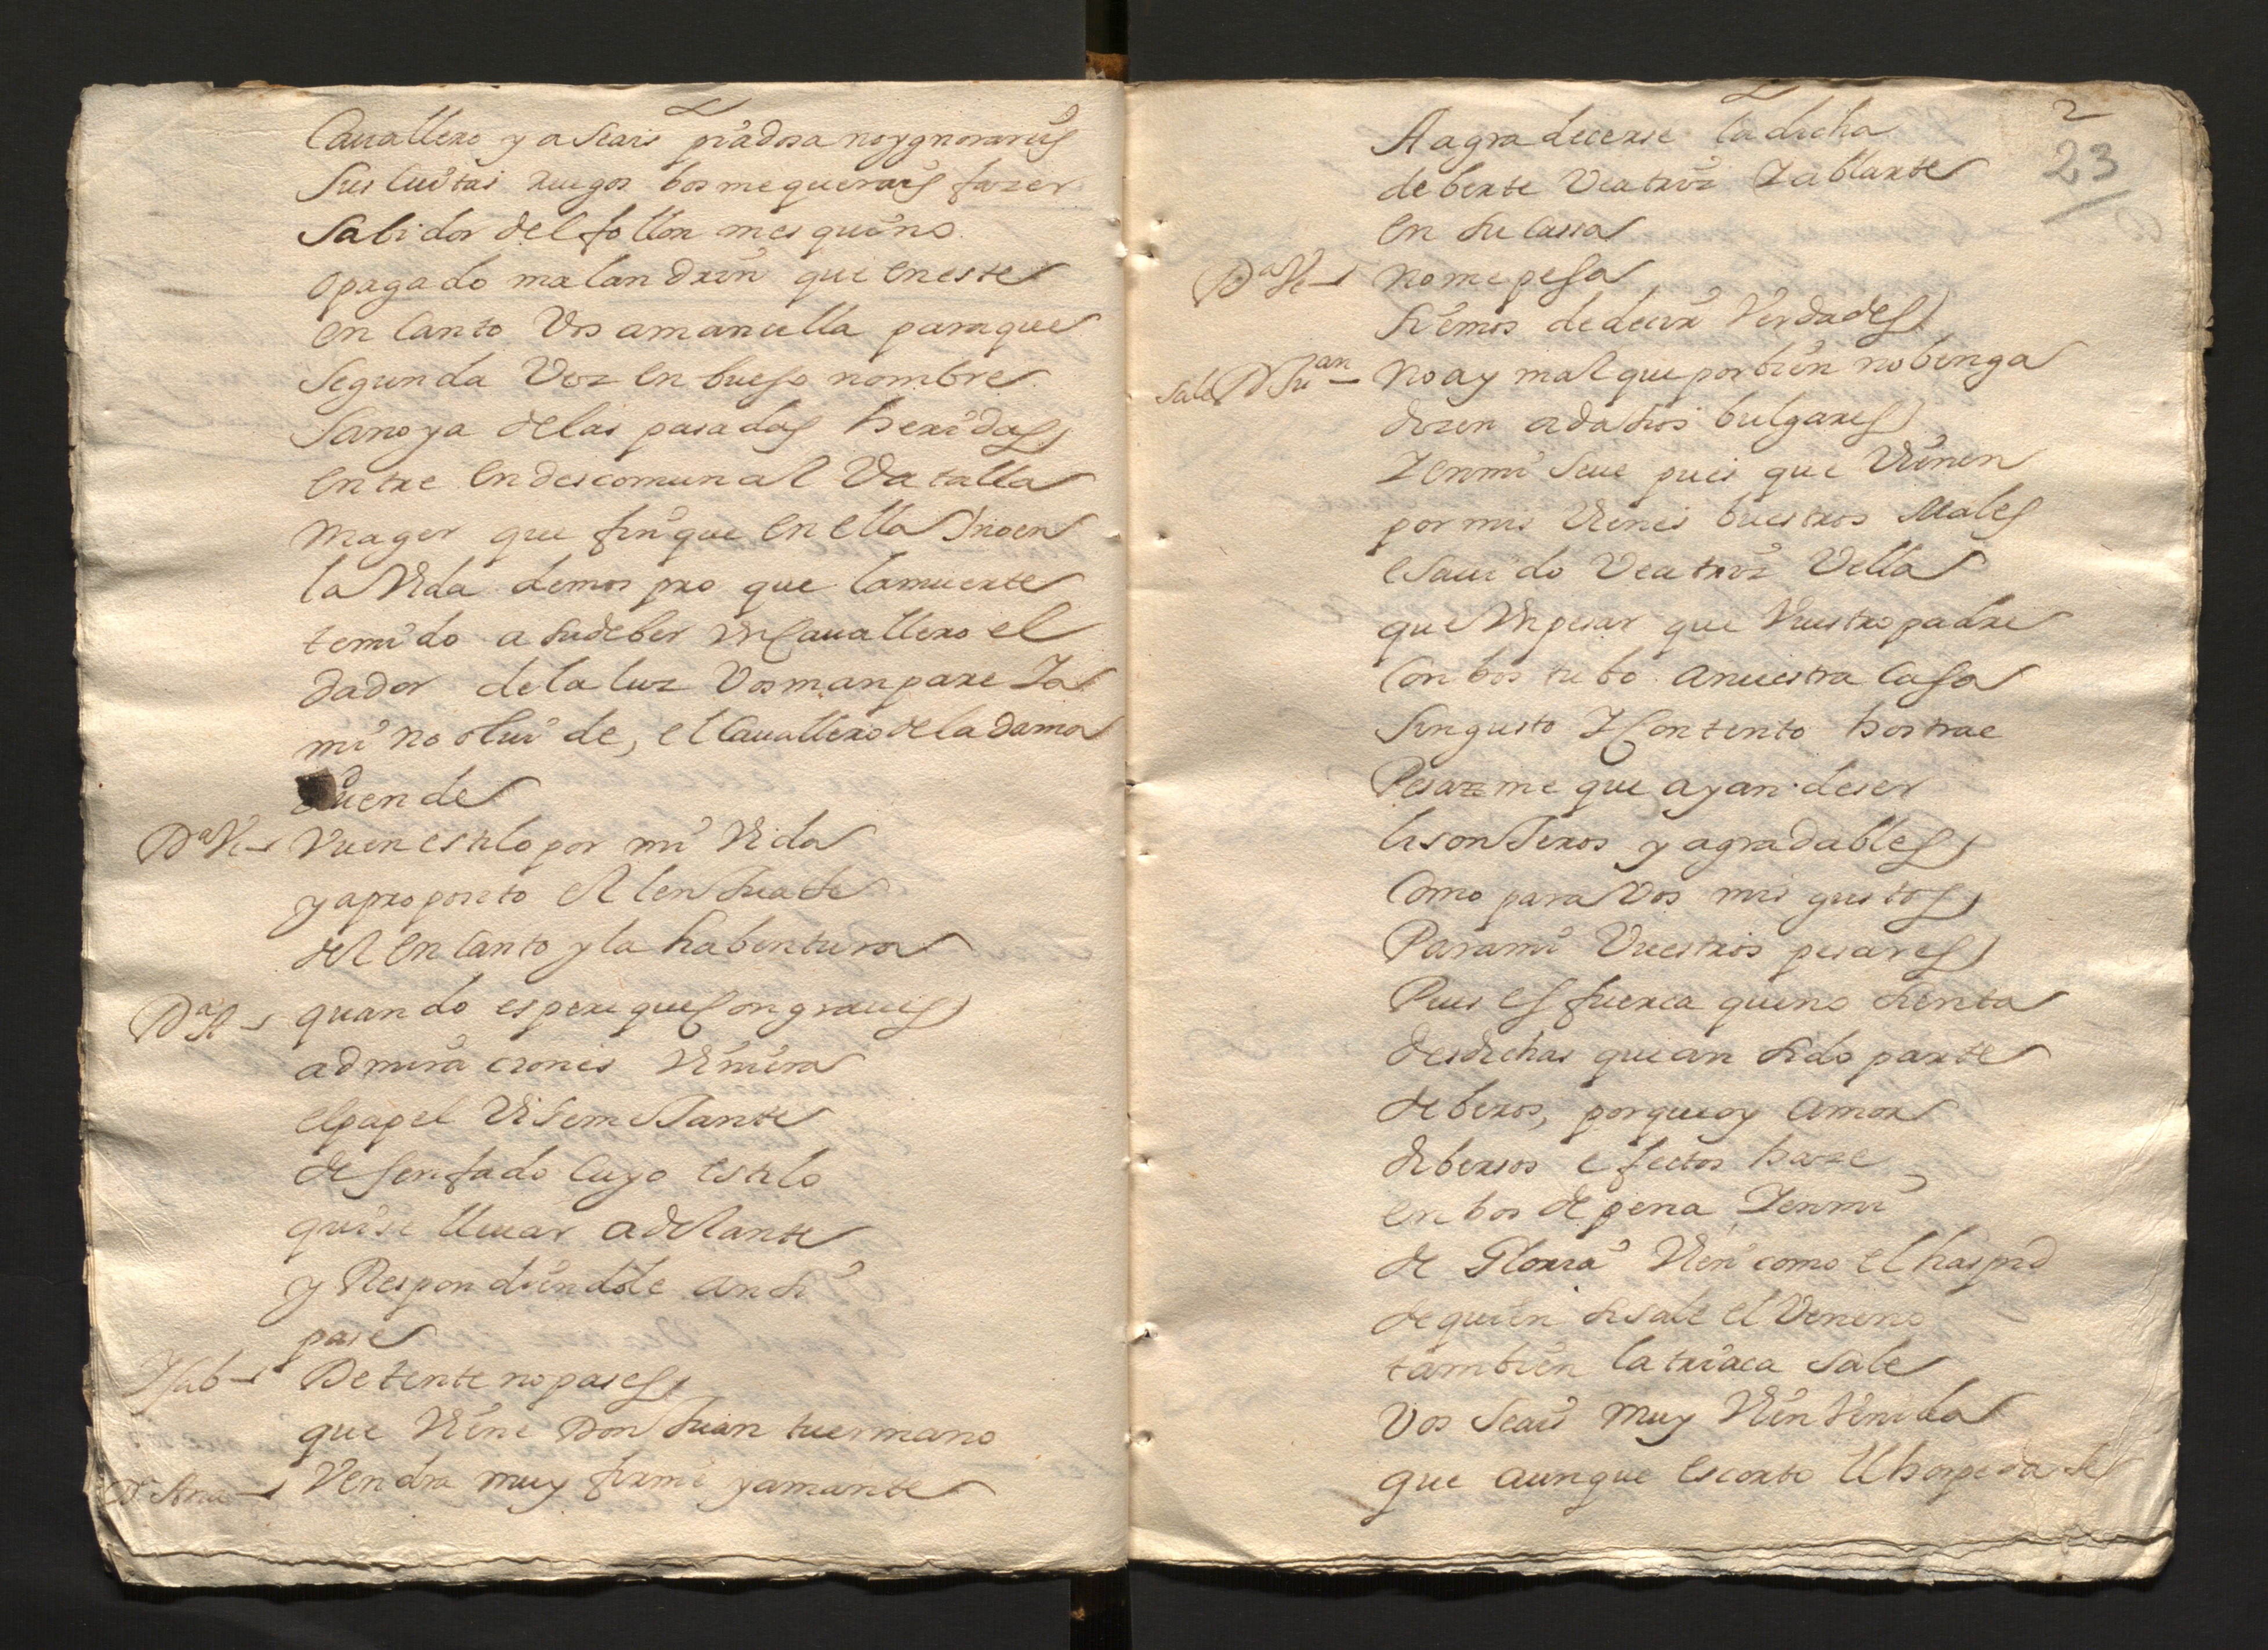 Cauallero y a seais piadosa no ygnorareis
sus cuitas ruegos bos me querais fazer
sabidor del follon mesquino
o pagado malandrin que en este
encanto vos amancilla para que
segunda vez en bueso nombre
sano ya de las pasadas heridas
entre en descomunal vatalla
mager que finque en ella
la vida demos pro que la muerte
temido a su deber un cauallero el
dador de la luz vos manpare Ya
mi no oluide, el cauallero de la dama
duende
Dª Ve vuen estilo por mi vida
y a proposito el lenguaxe
del encanto y la habentura
Dª A quando espere que con graues
admiraciones viniera
el papel vi semexante
desenfado cuyo estilo
quise lleuar adelante
y Respondiendole ansi
pase
Ysab Detente no pases
que viene Don Juan tu ermano
Dª Ana vendra muy firme y amante
2
23
A agradecerse la dicha
de berte veatriz Y ablarte
en su cassa
Dª Ve no me pesa
si emos de decir verdades
sale D Juan no ay mal que por bien no benga
dizen adaxios bulgares
Y en mi se ue pues que vienen
por mis vienes buestros males
e sauido veatriz vella
que un pesar que vuestro padre
con bos tubo a nuestra casa
sin gusto Y contento hos trae
Pesame que ayan de ser
lisonjeros y agradables
como para vos mis gustos
Para mi vuestros pesares
Pues es fuerca que no sienta
desdichas que an sido parte
de beros, porque oy amor
dibersos efectos haze
en bos de pena Y en mi
de Gloria vien como el haspid
de quien si sale el veneno
tambien la triaca sale
vos seais muy vien venida
que aunque es corto el hospedaxe